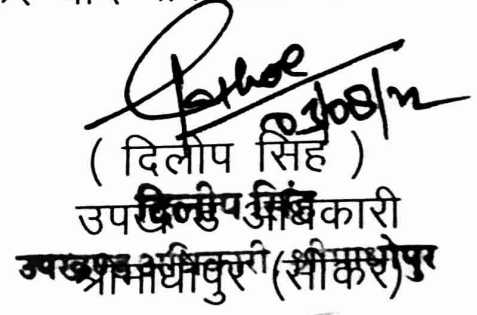 03/08/22
( दिलीप सिंह )
दिलीप सिंह
उपखण्ड अधिकारी
उपखण्ड अधिकारी, श्रीमाधोपुर
श्रीमाधोपुर (सीकर)